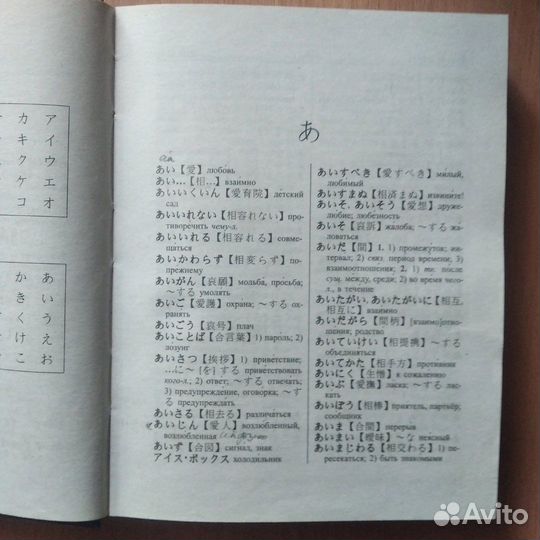 ア
イ
ウ
エ
オ
カ
キ
ク
ケ
コ
あ
い
う
え
お
か
き
く
け
こ
あ
あい【愛】любовь
あい...【相...】взаимно
あいいくいん【愛育院】детский
сад
あいいれない【相容れない】про-
тиворечить чему-л.
あいいれる【相容れる】совме-
щаться
あいかわらず【相変らず】по-
прежнему
あいがん【哀願】мольба, просьба;
～する умолять
あいご【愛護】охрана; ～する ох-
ранять
あいごう【哀号】плач
あいことば【合言葉】1) пароль; 2)
лозунг
あいさつ【挨拶】1) приветствие;
...に～[を]する приветствовать
кого-л.; 2) ответ; ～する отвечать;
3) предупреждение, оговорка; ～す
る предупреждать
あいさる【相去る】различаться
あいじん【愛人】возлюбленный,
возлюбленная
あいず【合図】сигнал, знак
アイス・ボックス холодильник
あいすべき【愛すべき】милый,
любимый
あいすまぬ【相済まぬ】извините!
あいそ, あいそう【愛想】друже-
любие; любезность
あいそ【哀訴】жалоба; ～する жа-
ловаться
あいだ【間】1. 1) промежуток; ин-
тервал; 2) связ. период времени; 3)
взаимоотношения; 2. 1) тк. после
сущ. между, среди; 2) во время чего-
л., в течение
あいたがい, あいたがいに【相互,
相互に】взаимно
あいだがら【間柄】[взаимо]отно-
шения; родство
あいていけい【相提携】～する
объединяться
あいてかた【相手方】противник
あいにく【生憎】к сожалению
あいぶ【愛撫】ласка; ～する лас-
кать
あいぼう【相棒】приятель, партнёр,
сообщник
あいま【合間】перерыв
あいまい【曖昧】～な неясный
あいまじわる【相交わる】1) пе-
ресекаться; 2) быть знакомыми
Avito